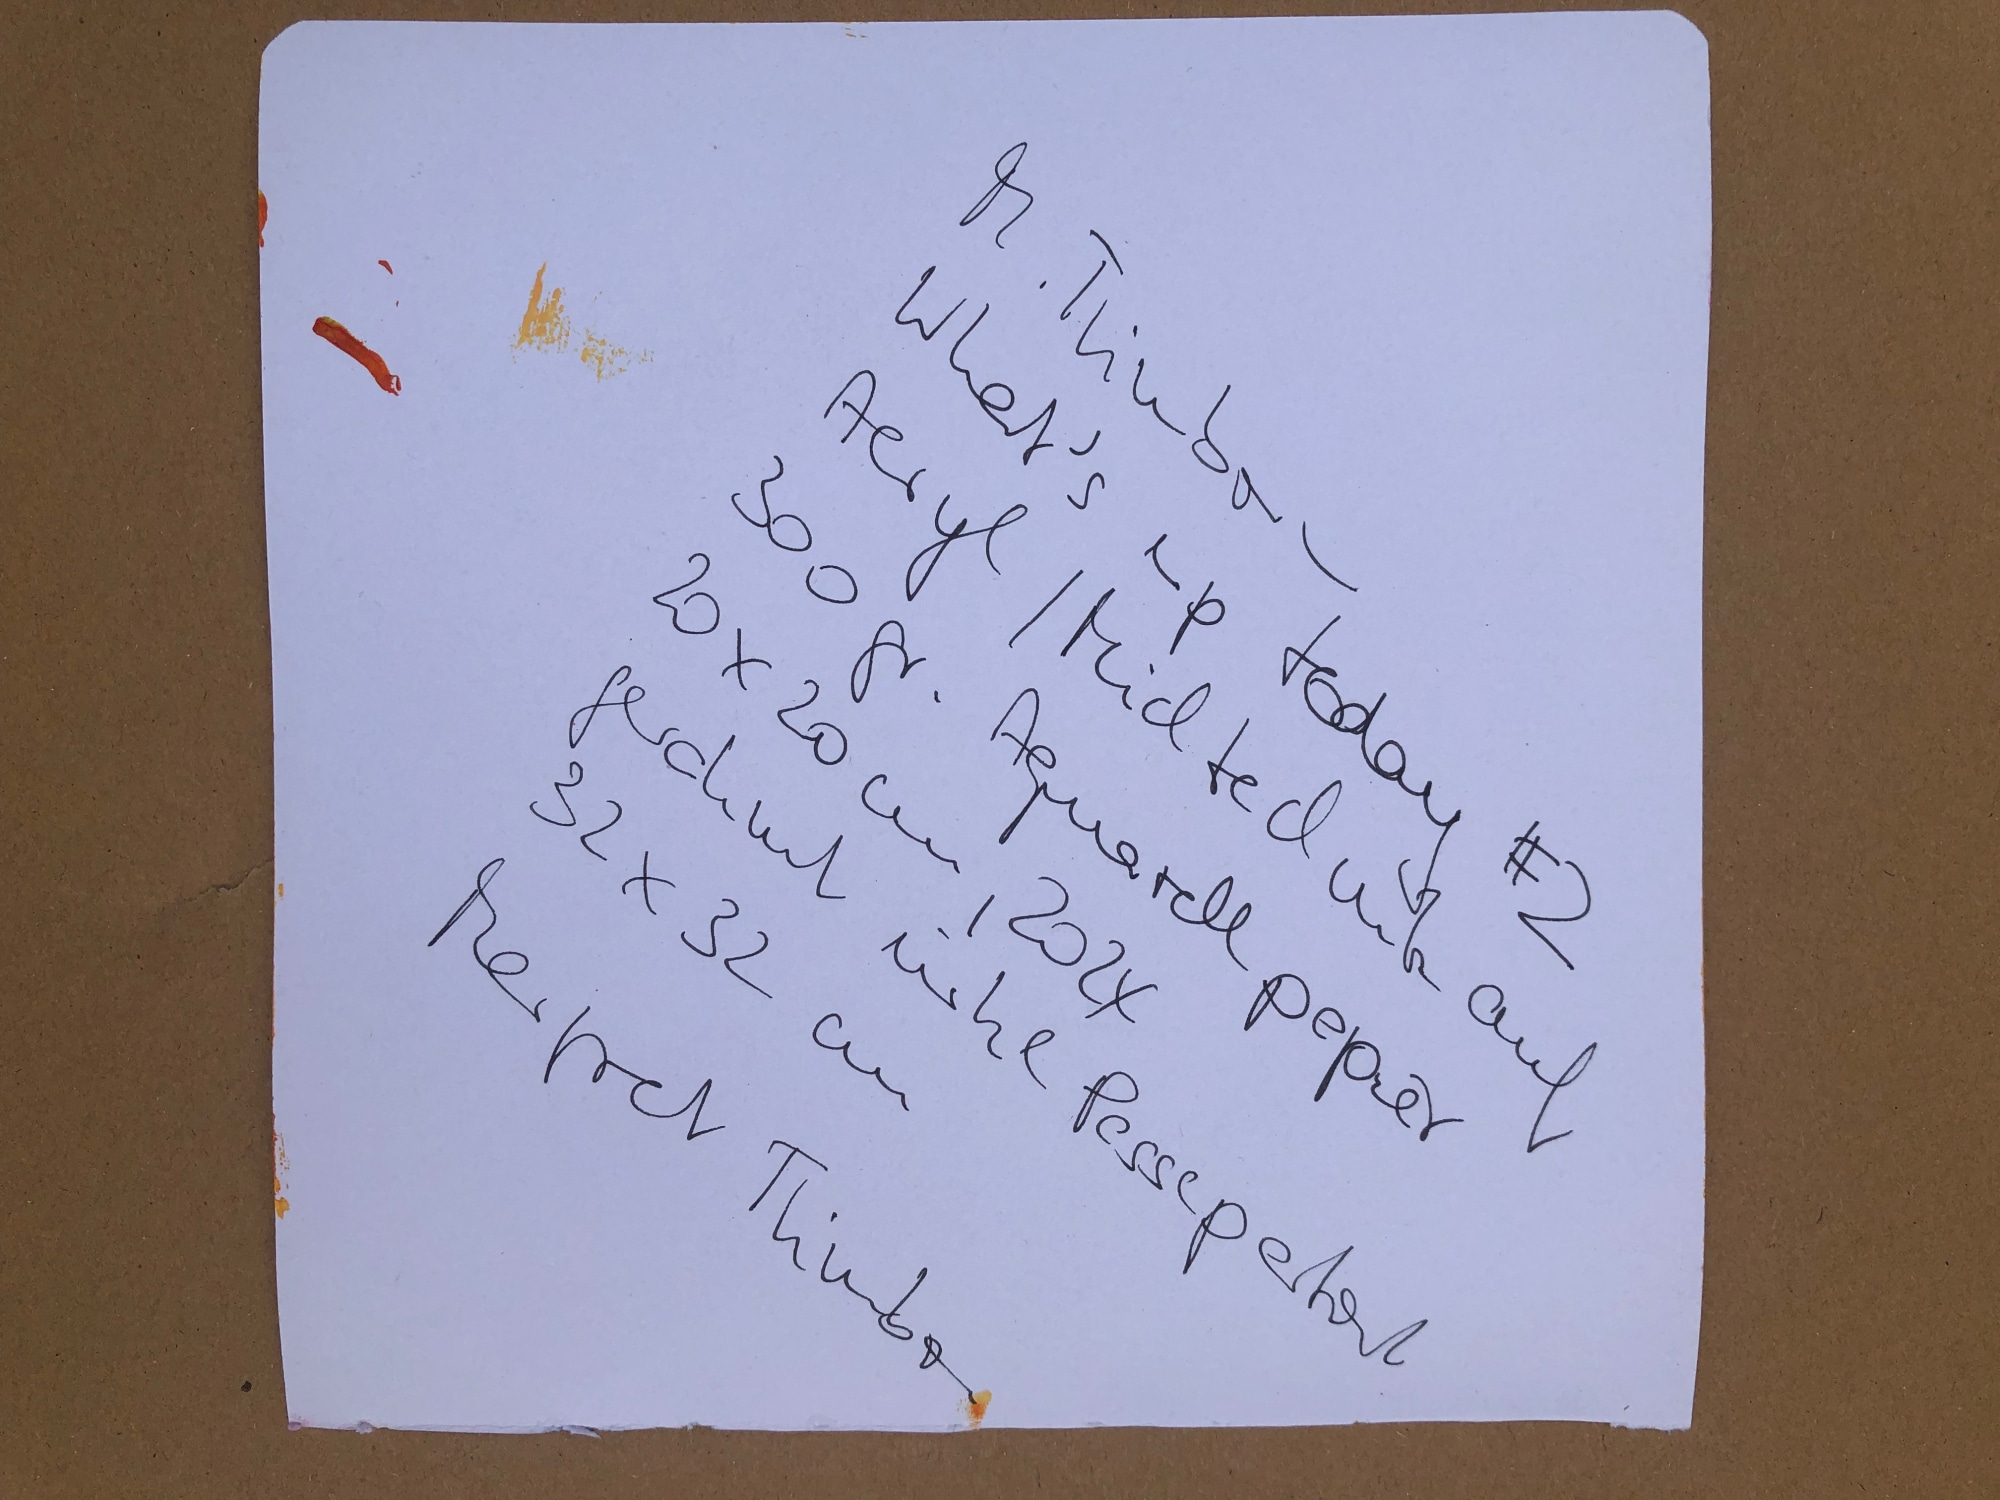 M. Thimba
What's up today #2
Acryl / Mixed technik auf
300 gr. Aquarellpapier
20 x 20 cm, 2024
gerahmt inkl. Passepartout
32 x 32 cm
Thimba